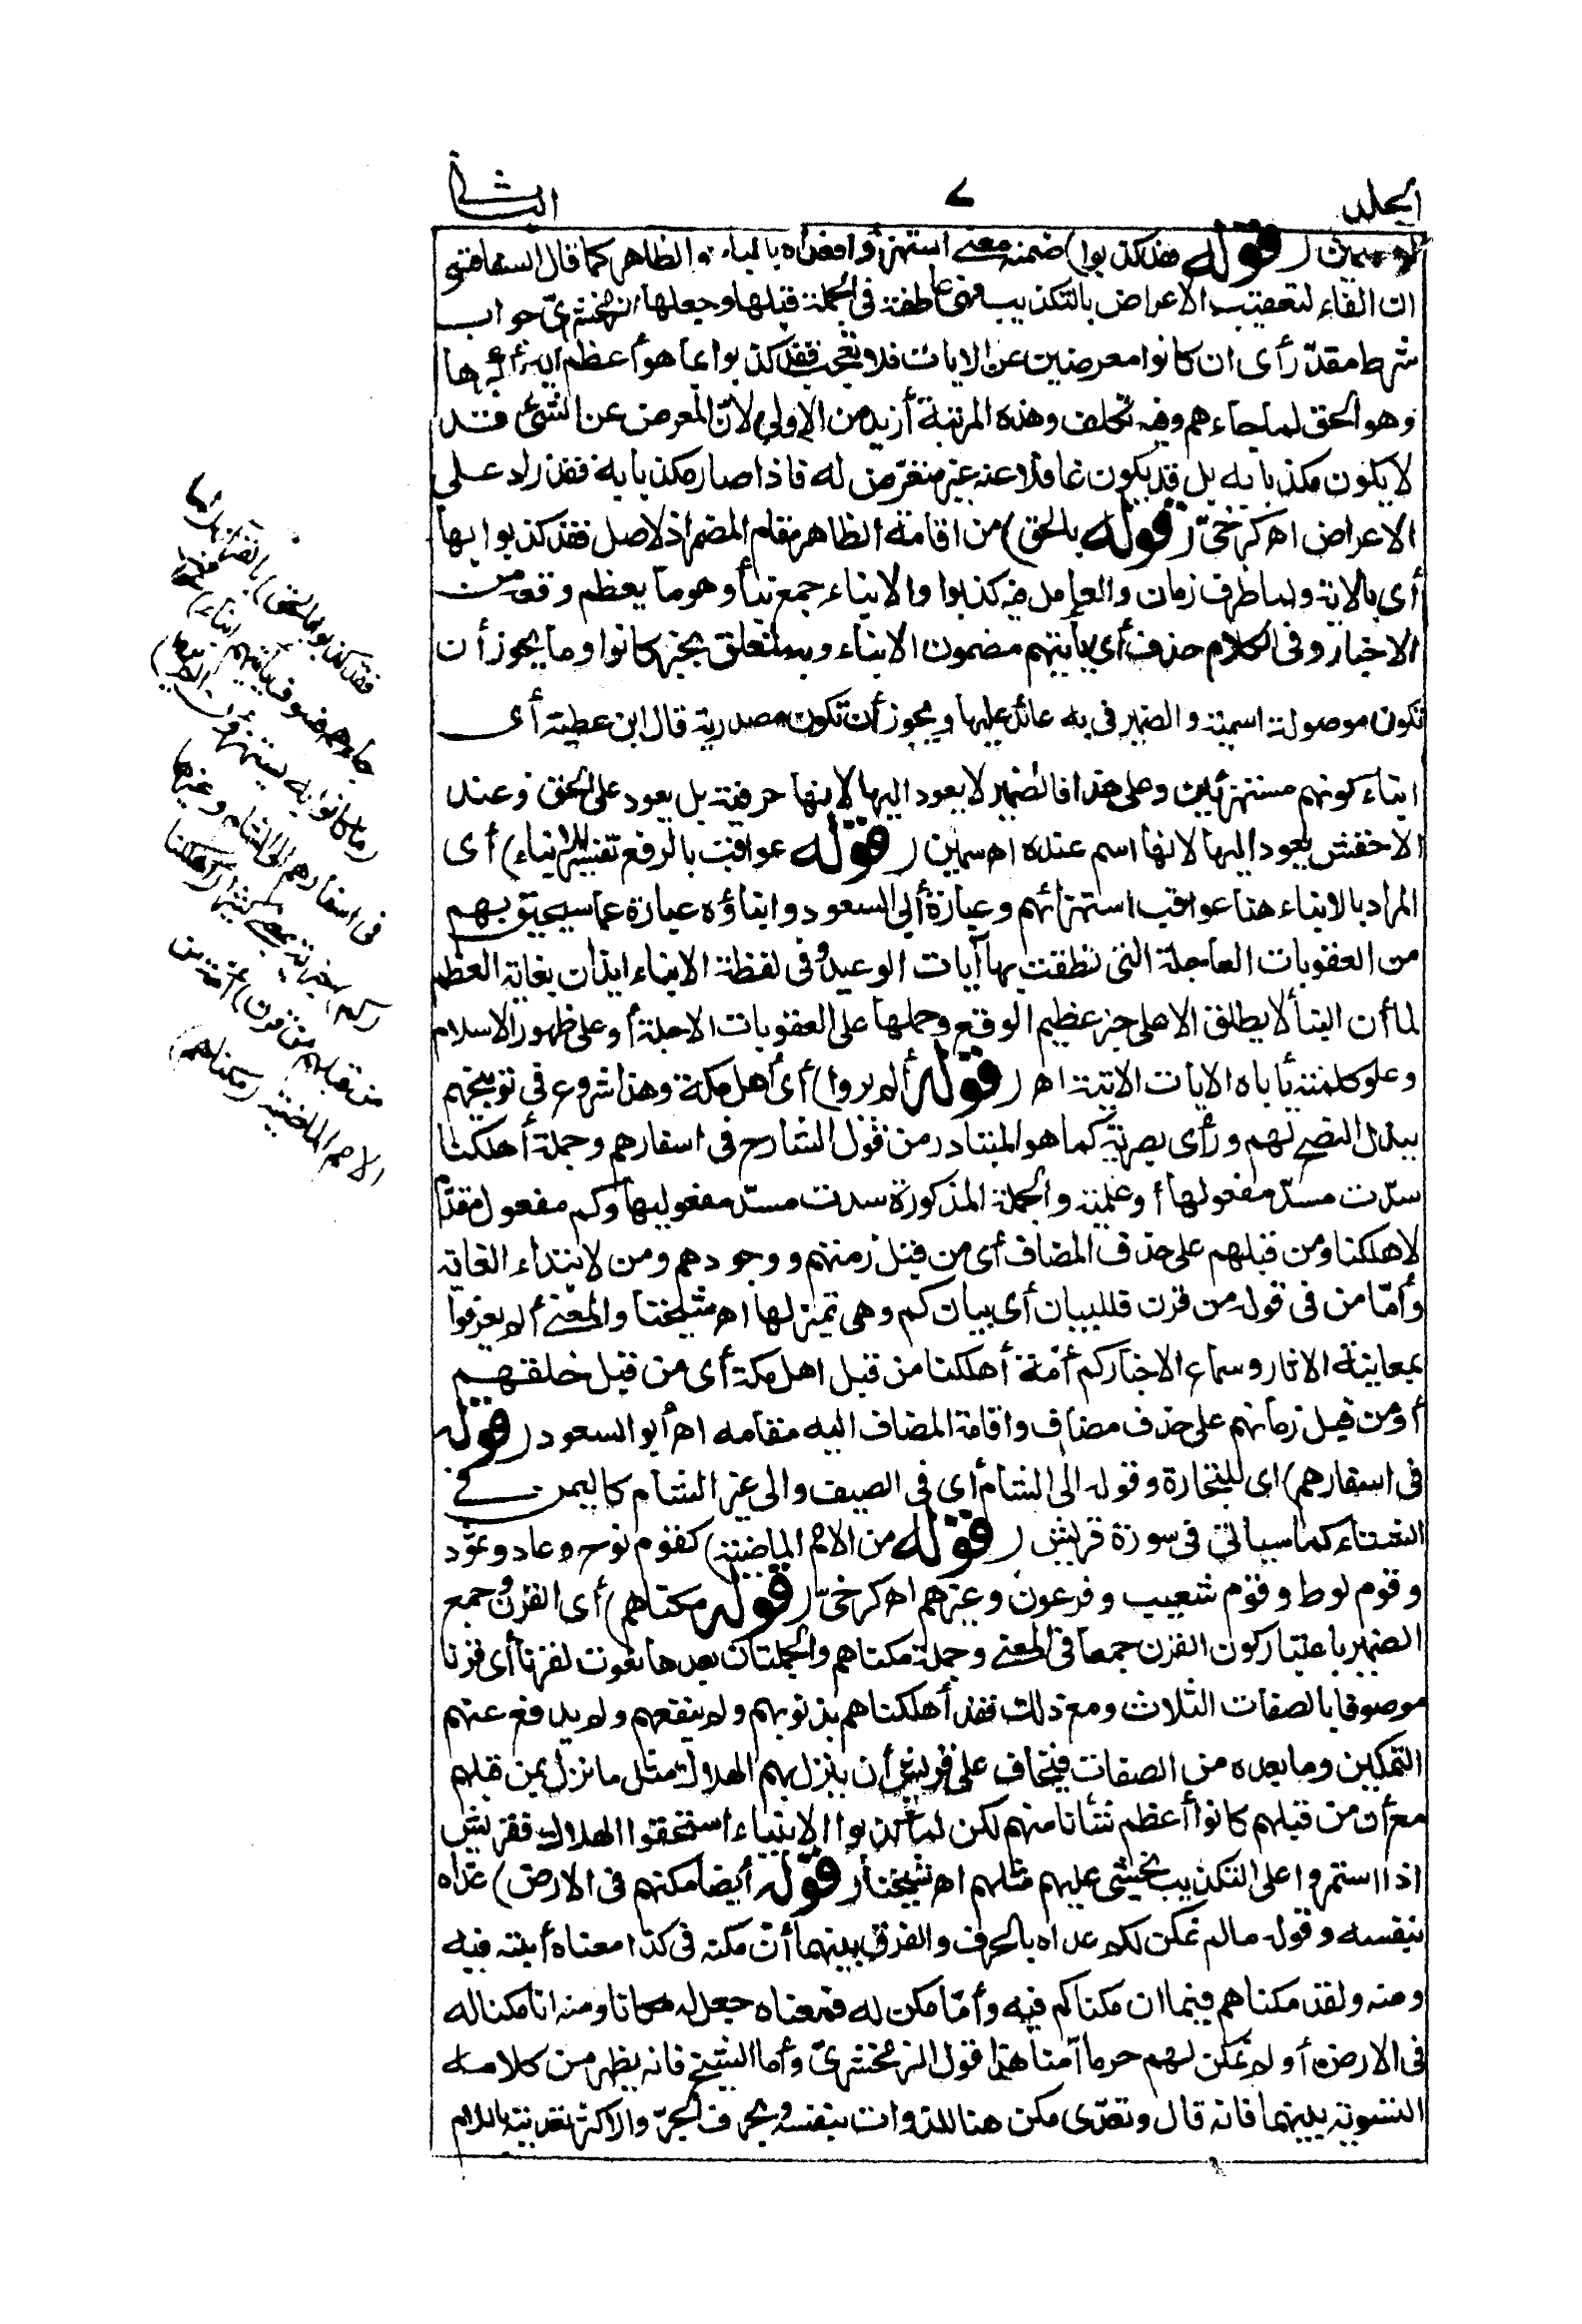 الجلد
٧
الثاني
اه سمين (قوله فقد كذبوا) ضمنه معنى استهزؤا فعداه بالباء والظاهر كما قال السفاقسي
ان الفاء لتعقيب الاعراض بالتكذيب فهي عاطفة في الجملة قبلها وجعلها الزمخشريّ جواب
شرط مقدّر أي ان كانوا معرضين عن الايات فلا تعجب فقد كذبوا بما هو أعظم آية وأكبرها
وهو الحق لما جاءهم وفيه تكلف وهذه المرتبة أزيد من الاولى لانّ المعرض عن الشئ قد
لا يكون مكذبا به بل قد يكون غافلا عنه غير متعرّض له فاذا صار مكذبا به فقد زاد على
الاعراض اه كرخيّ (قوله بالحق) من اقامة الظاهر مقام المضمر اذ الاصل فقد كذبوا بها
أي بالاية ولما ظرف زمان والعامل فيه كذبوا والانباء جمع نبأ وهو ما يعظم وقعه من
الاخبار وفي الكلام حذف أي يأتيهم مضمون الانباء وبه متعلق بخبر كانوا وما يجوز أن
تكون موصولة اسمية والضمير في به عائد عليها ويجوز أن تكون مصدرية قال ابن عطية أي
انباء كونهم مستهزئين وعلى هذا فالضمير لا يعود اليها لانها حرفية بل يعود على الحق وعند
الاخفش يعود اليها لانها اسم عنده اه سمين (قوله عواقب بالرفع تفسير للانباء) أي
المراد بالانباء هنا عواقب استهزائهم وعبارة أبي السعود وانباؤه عبارة عما سيحيق بهم
من العقوبات العاجلة التي نطقت بها آيات الوعيد وفي لفظة الانباء ايذان بغاية العظم
لما أن النبأ لا يطلق الا على خبر عظيم الوقع وحملها على العقوبات الاجلة أو على ظهور الاسلام
وعلو كلمته يأباه الايات الاتية اه (قوله ألم يروا) أي أهل مكة وهذا شروع في توبيخهم
ببذل النصح لهم ورأى بصرية كما هو المتبادر من قول الشارح في اسفارهم وجملة أهلكنا
سدّت مسدّ مفعولها أو علمية والجملة المذكورة سدت مسدّ مفعوليها وكم مفعول مقدّم
لاهلكنا ومن قبلهم على حذف المضاف أي من قبل زمنهم ووجودهم ومن لابتداء الغاية
وأمّا من في قوله من قرن فللبيان أي بيان كم وهي تمييز لها اه شيخنا والمعنى ألم يعرفوا
بمعاينة الاثار وسماع الاخبار كم أمّة أهلكنا من قبل اهل مكة أي من قبل خلقهم
أو من قبل زمانهم على حذف مضاف واقامة المضاف اليه مقامه اه أبو السعود (قوله
في اسفارهم) اي للتجارة وقوله الى الشام أي في الصيف والى غير الشام كاليمن في
الشتاء كما سيأتي في سورة قريش (قوله من الامم الماضية) كقوم نوح وعاد وثمود
وقوم لوط وقوم شعيب وفرعون وغيرهم اه كرخيّ (قوله مكناهم) أي القرن وجمع
الضمير باعتبار كون القرن جمعا في المعنى وجملة مكناهم والجملتان بعدها نعوت لقرنا أي قرنا
موصوفا بالصفات الثلاث ومع ذلك فقد أهلكناهم بذنوبهم ولم ينفعهم ولم يدفع عنهم
التمكين وما بعده من الصفات فيخاف على قريش أن ينزل بهم الهلاك مثل ما نزل بمن قبلهم
مع أن من قبلهم كانوا أعظم شأنا منهم لكن لما كذبوا الانبياء استحقوا الهلاك فقريش
اذا استمروا على التكذيب يخشى عليهم مثلهم اه شيخنا (قوله أيضا مكنهم في الارض) عدّاه
بنفسه وقوله مالم نمكن لكم عداه بالحرف والفرق بينهما أن مكنه في كذا معناه أثبته فيه
ومنه ولقد مكناهم فيما ان مكناكم فيه وأمّا مكن له فمعناه جعل له مكانا ومنه انا مكنا له
في الارض أو لم نمكن لهم حرما آمنا هذا قول الزمخشريّ وأما الشيخ فانه يظهر من كلامه
التسوية بينهما فانه قال وتعدّى مكن هنا للذوات بنفسه وبحرف الجرّ والاكثر تعديته باللام
فقد كذبوا بالحق) بالقرآن (لما
جاءهم فسوف يأتيهم انباء) عواقب
(ما كانوا به يستهزؤن ألم يروا)
في اسفارهم الى الشام وغيرها
(كم) خبرية بمعنى كثيرا (أهلكنا
من قبلهم من قرن) أمّة من
الامم الماضية (مكناهم)